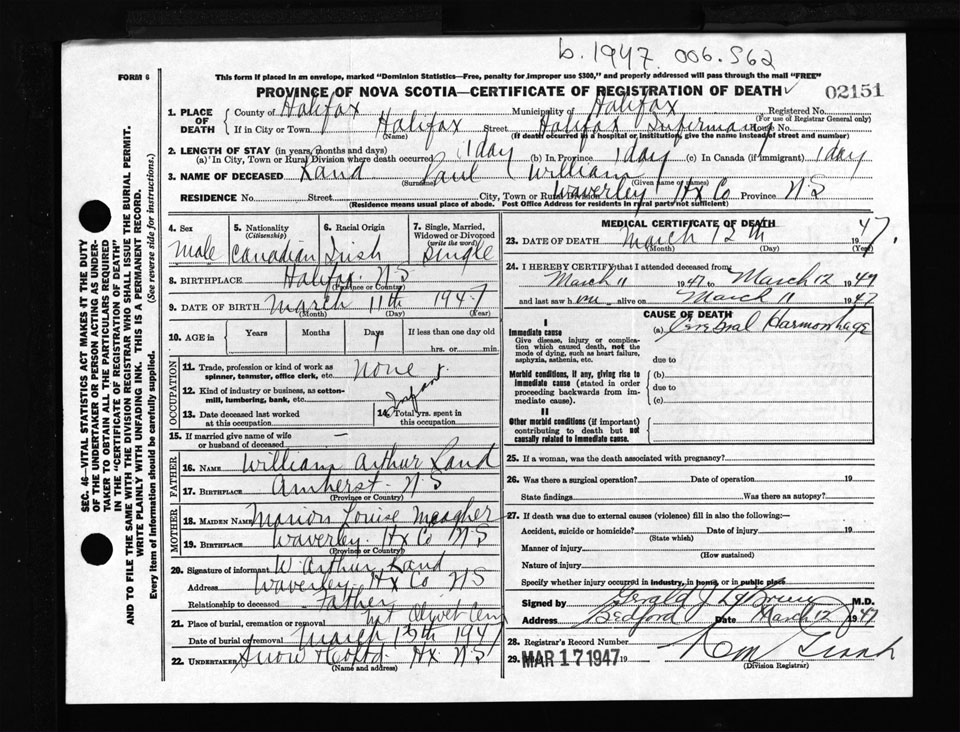 b. 1947. 006.562
FORM 6
This form if placed in an envelope, marked "Dominion Statistics—Free, penalty for improper use $300," and properly addressed will pass through the mail "FREE"
PROVINCE OF NOVA SCOTIA—CERTIFICATE OF REGISTRATION OF DEATH
02151
1. PLACE OF DEATH
County of Halifax Municipality of Halifax Registered No.
(For use of Registrar General only)
If in City or Town Halifax Street Halifax Infirmary House No.
(Name) (If death occurred in a hospital or institution, give the name instead of street and number)
2. LENGTH OF STAY (in years, months and days)
(a) In City, Town or Rural Division where death occurred 1 day (b) In Province 1 day (c) In Canada (if immigrant) 1 day
3. NAME OF DECEASED Rand Paul William
(Surname) (Given name or names)
RESIDENCE No. Street City, Town or Rural Division Waverley Hx Co Province N S
(Residence means usual place of abode. Post Office Address for residents in rural parts not sufficient)
4. Sex
Male
5. Nationality
(Citizenship)
Canadian
6. Racial Origin
Irish
7. Single, Married, Widowed or Divorced
(write the word)
Single
8. BIRTHPLACE Halifax N S
(Province or Country)
9. DATE OF BIRTH March 11th 1947
(Month) (Day) (Year)
10. AGE in Years Months Days If less than one day old
1 hrs. or min.
OCCUPATION
11. Trade, profession or kind of work as spinner, teamster, office clerk, etc. None
12. Kind of industry or business, as cotton-mill, lumbering, bank, etc. Infant
13. Date deceased last worked at this occupation
14. Total yrs. spent in this occupation
15. If married give name of wife or husband of deceased —
FATHER
16. NAME William Arthur Rand
17. BIRTHPLACE Amherst N S
(Province or Country)
MOTHER
18. MAIDEN NAME Marion Louise Meagher
19. BIRTHPLACE Waverley Hx Co N S
(Province or Country)
20. Signature of informant W. Arthur Rand
Address Waverley Hx Co N S
Relationship to deceased Father
21. Place of burial, cremation or removal Mt Olivet Cem
Date of burial or removal March 13th 1947
22. UNDERTAKER Snow & Co Ltd Hx N S
(Name and address)
MEDICAL CERTIFICATE OF DEATH
23. DATE OF DEATH March 12th 1947.
(Month) (Day) (Year)
24. I HEREBY CERTIFY that I attended deceased from
March 11 1947 to March 12 1947
and last saw him alive on March 11 1947
CAUSE OF DEATH
I
Immediate cause
Give disease, injury or complication which caused death, not the mode of dying, such as heart failure, asphyxia, asthenia, etc.
(a) Cerebral Harmorrhage
due to
Morbid conditions, if any, giving rise to immediate cause (stated in order proceeding backwards from immediate cause).
(b)
due to
(c)
II
Other morbid conditions (if important) contributing to death but not causally related to immediate cause.
25. If a woman, was the death associated with pregnancy?
26. Was there a surgical operation? Date of operation 19
State findings Was there an autopsy?
27. If death was due to external causes (violence) fill in also the following:—
Accident, suicide or homicide? Date of injury 19
(State which)
Manner of injury
(How sustained)
Nature of injury
Specify whether injury occurred in industry, in home, or in public place
Signed by Gerald J LeBrun M.D.
Address Bedford Date March 12 1947
28. Registrar's Record Number
29. MAR 17 1947 19
(Division Registrar)
SEC. 46—VITAL STATISTICS ACT MAKES IT THE DUTY
OF THE UNDERTAKER OR PERSON ACTING AS UNDER-
TAKER TO OBTAIN ALL THE PARTICULARS REQUIRED
IN THE "CERTIFICATE OF REGISTRATION OF DEATH"
AND TO FILE THE SAME WITH THE DIVISION REGISTRAR WHO SHALL ISSUE THE BURIAL PERMIT.
WRITE PLAINLY WITH UNFADING INK. THIS IS A PERMANENT RECORD.
Every item of information should be carefully supplied. (See reverse side for instructions.)